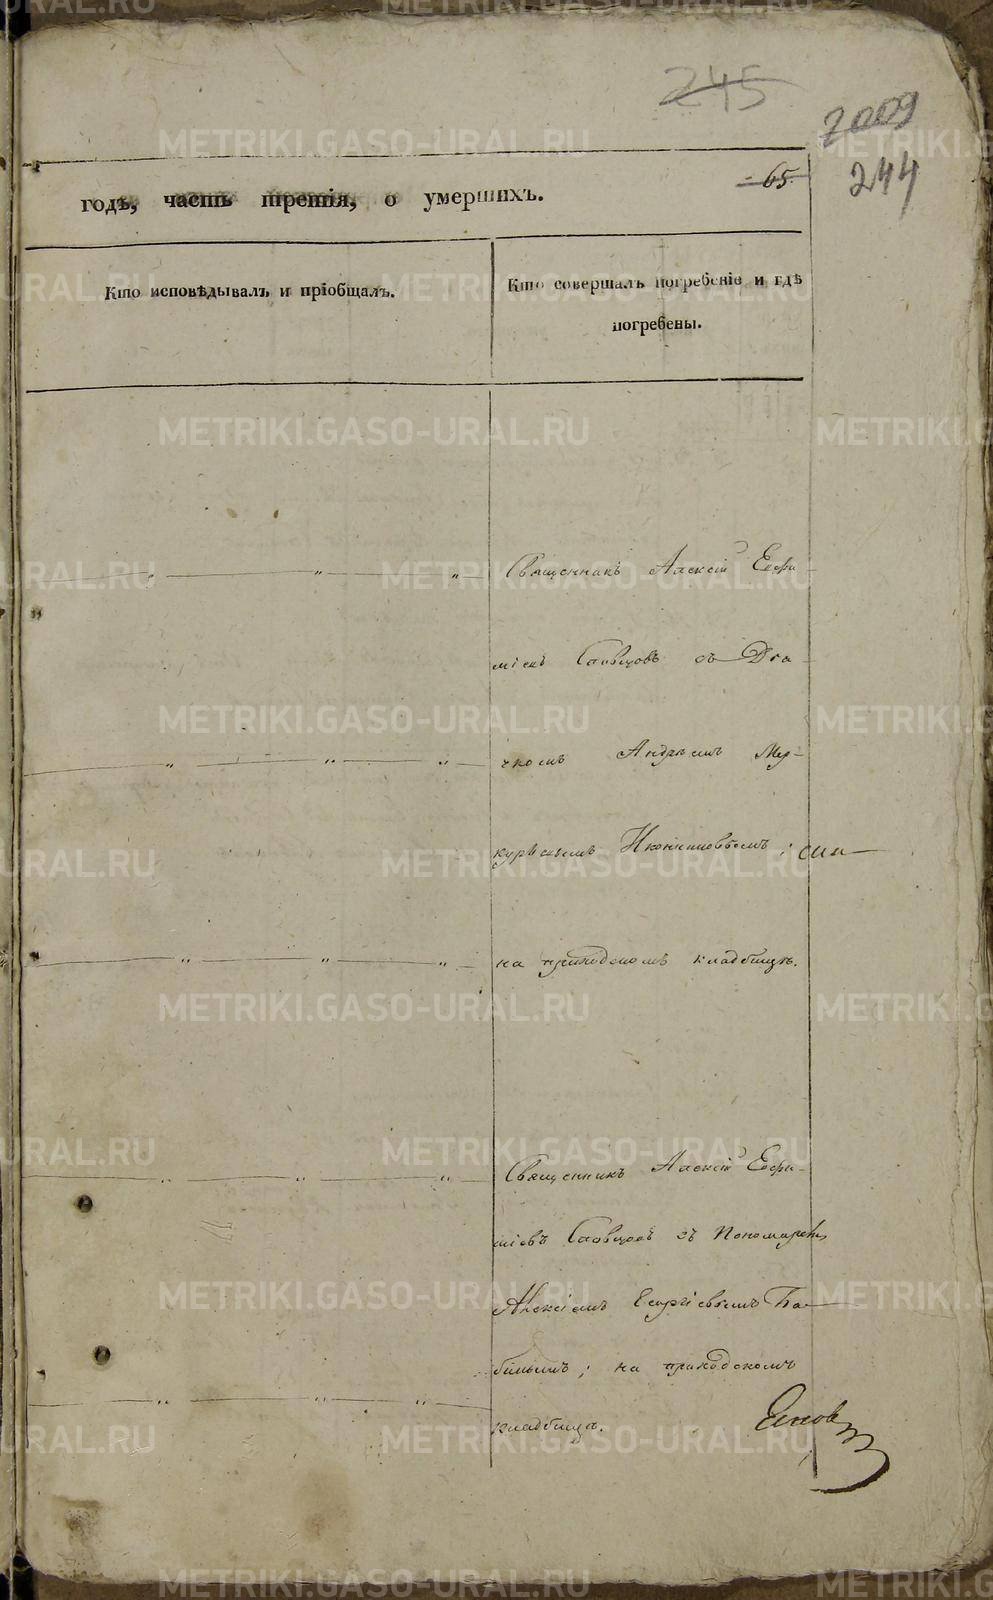 245
2009
244
65.
годъ, часть третія, о умершихъ.
Кто исповѣдывалъ и пріобщалъ.
Кто совершалъ погребеніе и гдѣ
погребены.
Священникъ Алексій Ефи
міевъ Словцовъ съ Дьа
чкомъ Андреемъ Мер-
курьевымъ
на приходскомъ кладбищѣ.
Священникъ Алексій Ефи-
міевъ Словцовъ съ Пономаремъ
Алексіемъ Георгіевымъ Ба-
бинымъ; на приходскомъ
кладбищѣ.
METRIKI.GASO-URAL.RU